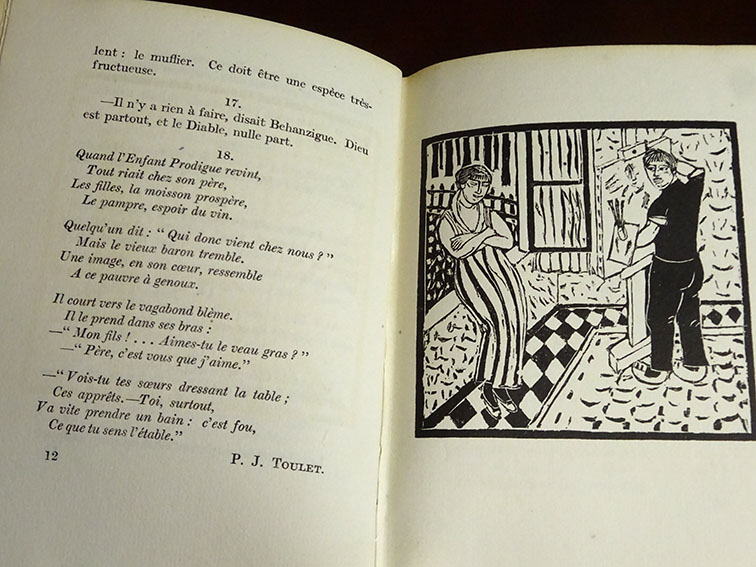 lent : le muflier. Ce doit être une espèce très-
fructueuse.
17.
—Il n'y a rien à faire, disait Behanzigue. Dieu
est partout, et le Diable, nulle part.
18.
Quand l'Enfant Prodigue revint,
Tout riait chez son père,
Les filles, la moisson prospère,
Le pampre, espoir du vin.
Quelqu'un dit : “ Qui donc vient chez nous ? ”
Mais le vieux baron tremble.
Une image, en son cœur, ressemble
A ce pauvre à genoux.
Il court vers le vagabond blême.
Il le prend dans ses bras :
—“ Mon fils ! . . . Aimes-tu le veau gras ? ”
—“ Père, c'est vous que j'aime.”
—“ Vois-tu tes sœurs dressant la table ;
Ces apprêts.—Toi, surtout,
Va vite prendre un bain : c'est fou,
Ce que tu sens l'étable.”
12
P. J. TOULET.